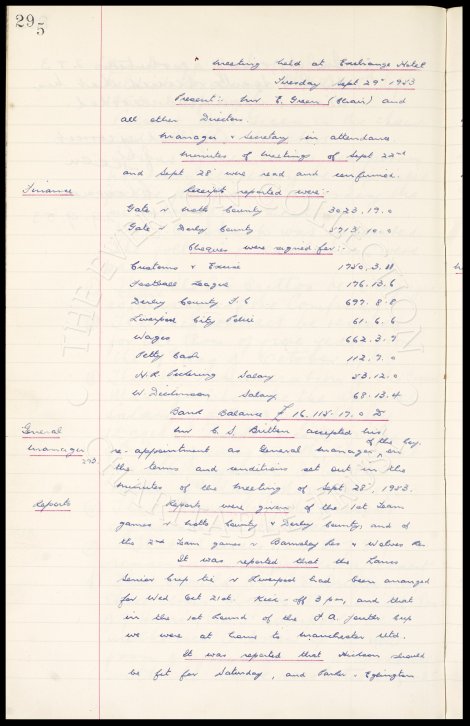 295
Meeting held at Exchange Hotel
Tuesday Sept 29th 1953
Present:- Mr E. Green (Chair) and
all other Directors.
Manager & Secretary in attendance
Minutes of Meetings of Sept 22nd
and Sept 28 were read and confirmed.
Finance
Receipts reported were:-
Gate v Notts County 3023.19.0
Gate v Derby County 5713.10.0
Cheques were signed for:-
Customs & Excise 1750.3.11
Football League 176.13.6
Derby County F.C 697.8.8
Liverpool City Police 61.6.6
Wages 662.3.9
Petty Cash 112.7.0
H.R. Pickering Salary 53.12.0
W. Dickinson Salary 68.13.4
Bank Balance £ 16.115.17.0 Dr
General Manager 293.
Mr C. S. Britton accepted his
re-appointment as General Manager of the Coy. on
the terms and conditions set out in the
minutes of the meeting of Sept 28, 1953.
Reports
Reports were given of the 1st Team
games v Notts County & Derby County, and of
the 2nd Team games v Barnsley Res & Wolves Res
It was reported that the Lancs
Senior Cup tie v Liverpool had been arranged
for Wed Oct 21st. Kick-off 3 pm, and that
in the 1st Round of the F.A. Youth Cup
we were at home to Manchester Utd.
It was reported that Hickson should
be fit for Saturday, and Parker & Eglington
THE EVERTON COLLECTION